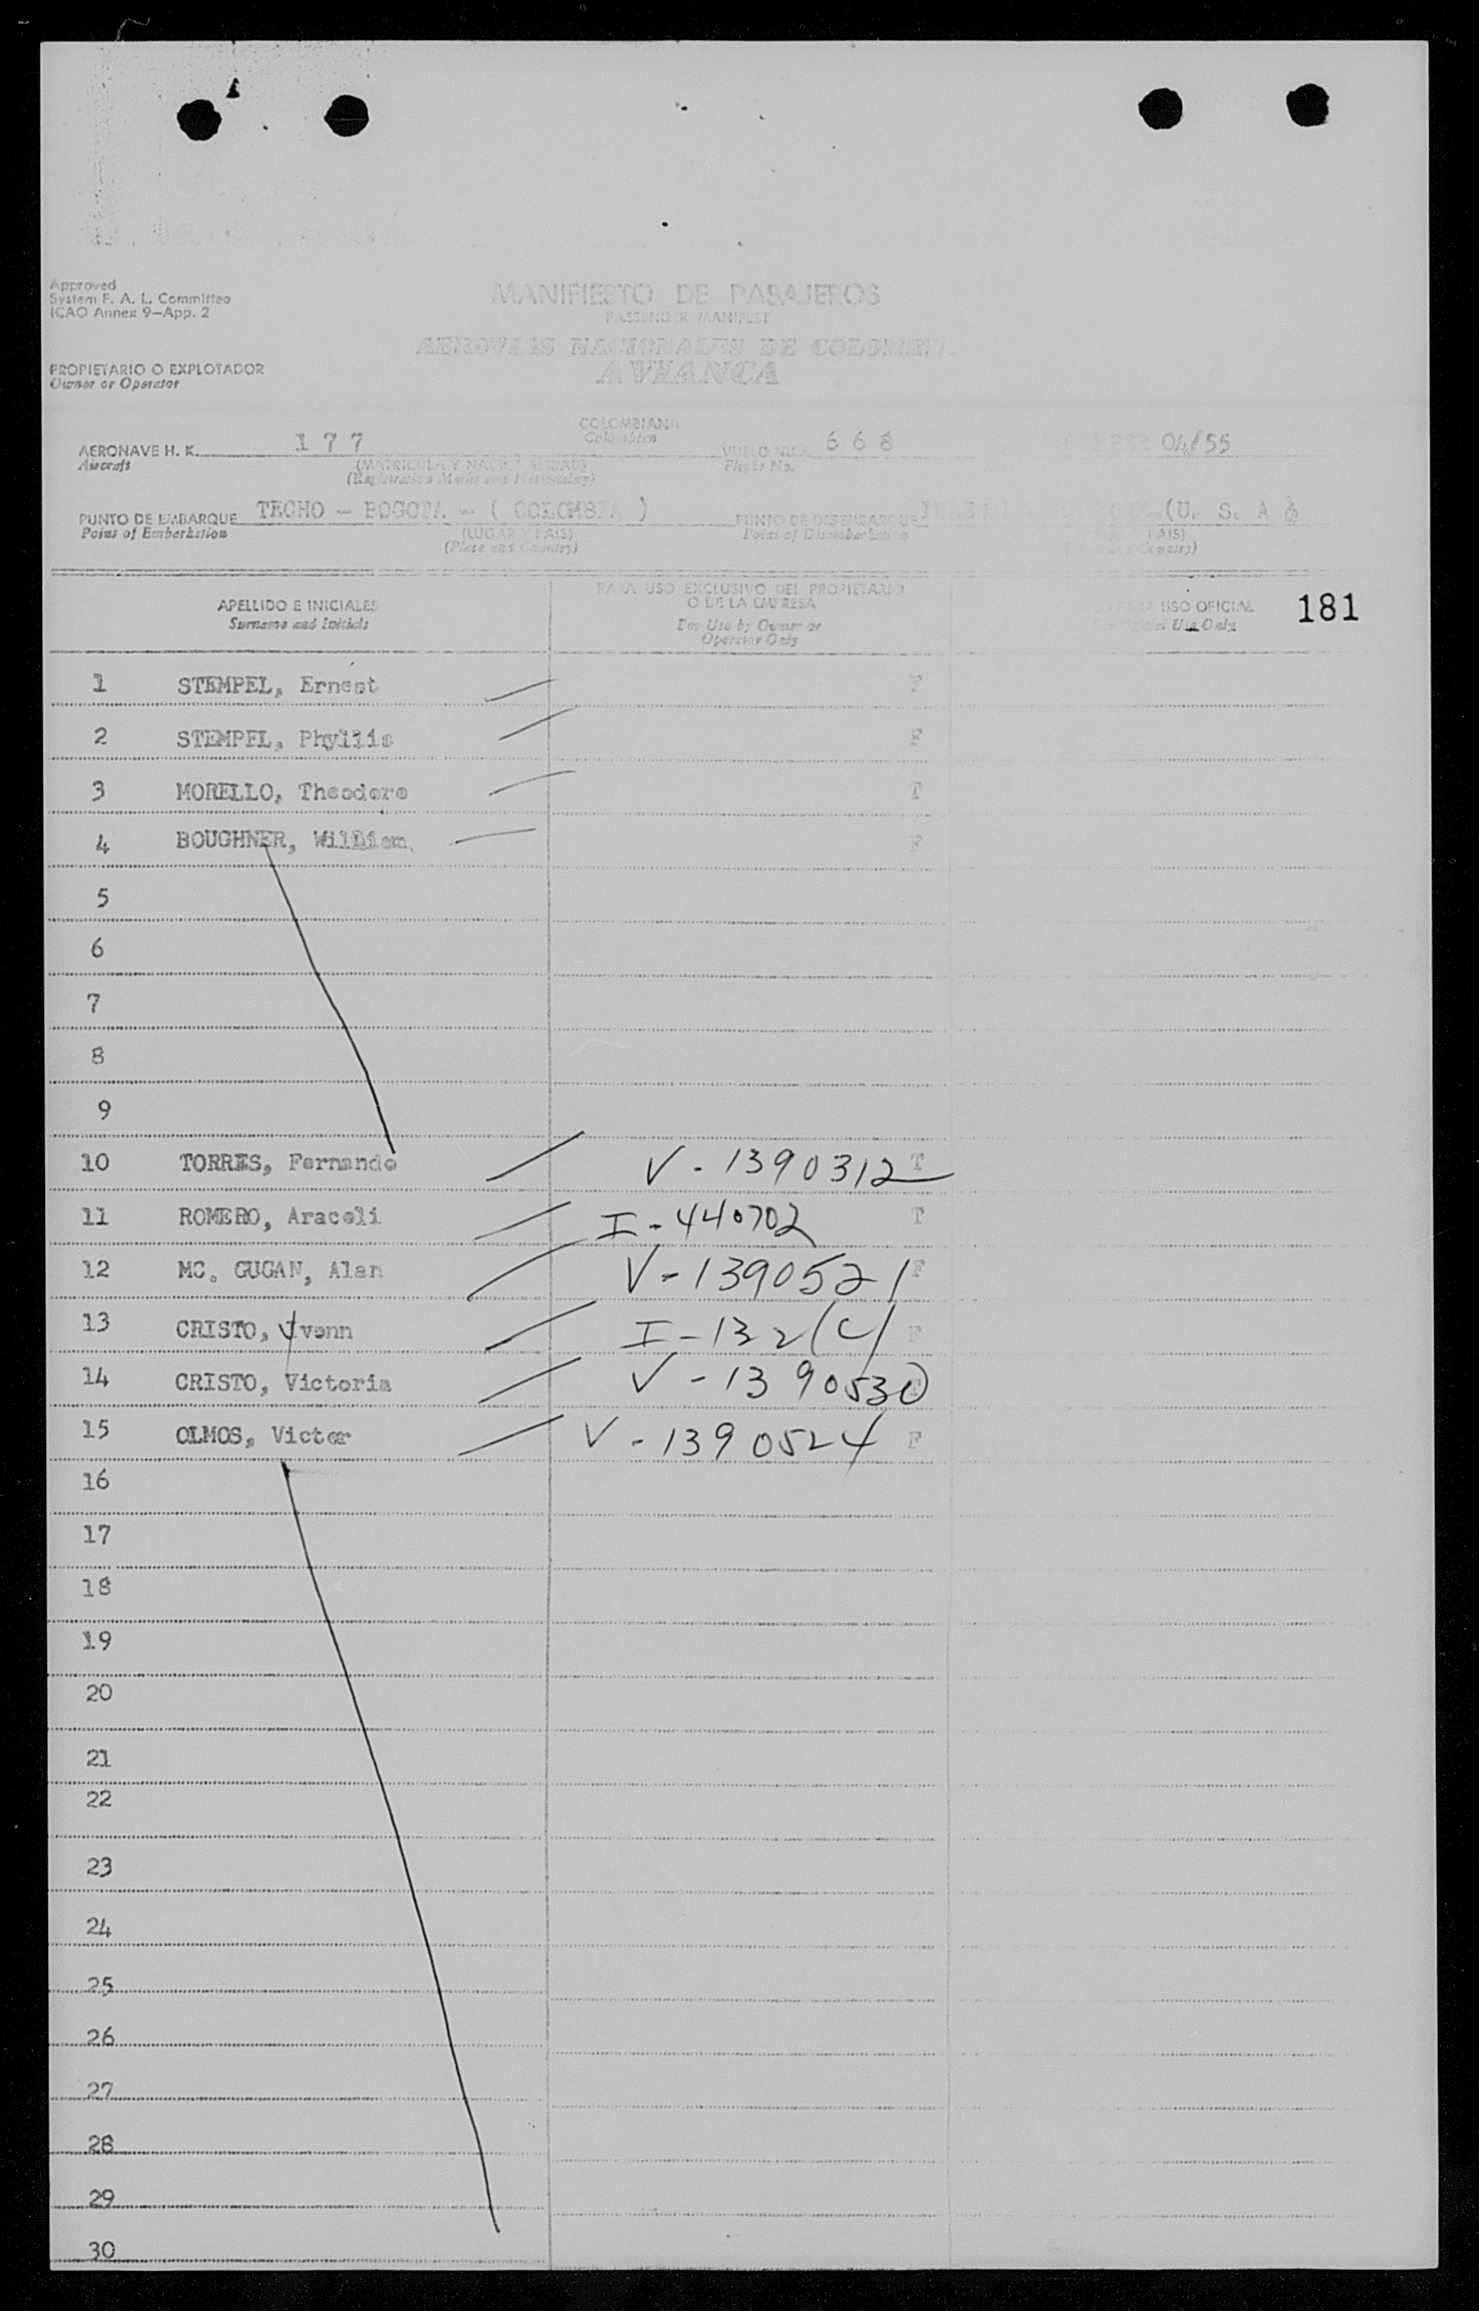 Approved
System F. A. L. Committee
ICAO Annex 9—App. 2
MANIFIESTO DE PASAJEROS
PASSENGER MANIFEST
AEROVIAS NACIONALES DE COLOMBIA
AVIANCA
PROPIETARIO O EXPLOTADOR
Owner or Operator
COLOMBIANA
Colombian
AERONAVE H. K. 177 VUELO NUM. 668 04/55
Aircraft (MATRICULA Y NACIONALIDAD) Flight No.
(Registration Marks and Nationality)
PUNTO DE EMBARQUE TECHO - BOGOTA - ( COLOMBIA ) PUNTO DE DESEMBARQUE (U. S. A
Point of Embarkation (LUGAR Y PAIS) Point of Disembarkation PAIS)
(Place and Country) Country)
APELLIDO E INICIALES
Surname and Initials
PARA USO EXCLUSIVO DEL PROPIETARIO
O DE LA EMPRESA
For Use by Owner or
Operator Only
USO OFICIAL
Use Only
181
1 STEMPEL, Ernest F
2 STEMPEL, Phyllis F
3 MORELLO, Theodore T
4 BOUGHNER, William F
5
6
7
8
9
10 TORRES, Fernando V - 1390312 T
11 ROMERO, Araceli I - 440702 T
12 MC. GUGAN, Alan V - 1390521 F
13 CRISTO, Yvonn I - 132 (c) F
14 CRISTO, Victoria V - 1390530
15 OLMOS, Victor V - 1390524 F
16
17
18
19
20
21
22
23
24
25
26
27
28
29
30